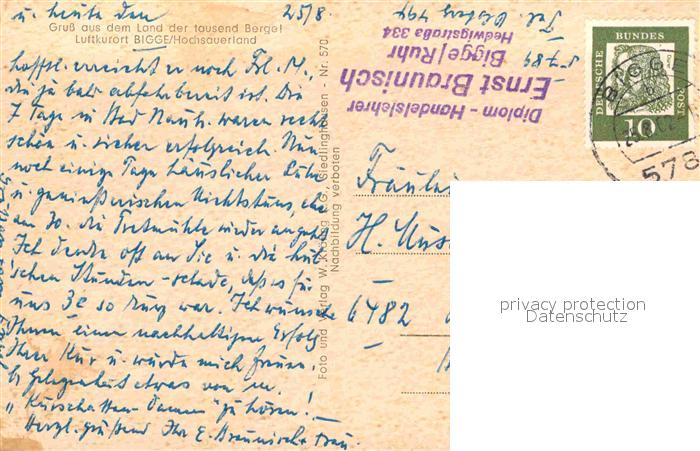 u. heute den 25/8.
Gruß aus dem Land der tausend Berge!
Luftkurort BIGGE/Hochsauerland
hoffl. erreicht er noch Frl. M.,
die ja bald abfahrbereit ist. Die
7 Tage in Bad Nauh. waren recht
schön u. sicher erfolgreich. Nun
noch einige Tage häuslicher Ruhe
u. genießerischen Nichtstuns, ehe
am 30. die Tretmühle wieder angeht.
Ich denke oft an Sie u. die hüb-
schen Stunden - schade, daß es für
uns 3 so kurz war. Ich wünsche
Ihnen einen nachhaltigen Erfolg
Ihrer Kur u. würde mich freuen,
b. Gelegenheit etwas von m.
"Kurschatten-Damen" zu hören! -
Herzl. grüßend Ihr E. Braunisch + Frau.
Foto und Verlag W. K. G., Siedlinghausen - Nr. 570
Nachbildung verboten
Diplom - Handelslehrer
Ernst Braunisch
Bigge/Ruhr
Hedwigstraße 334
DEUTSCHE BUNDESPOST
10
BIGGE
578
Fräulein
H.
6482
privacy protection
Datenschutz